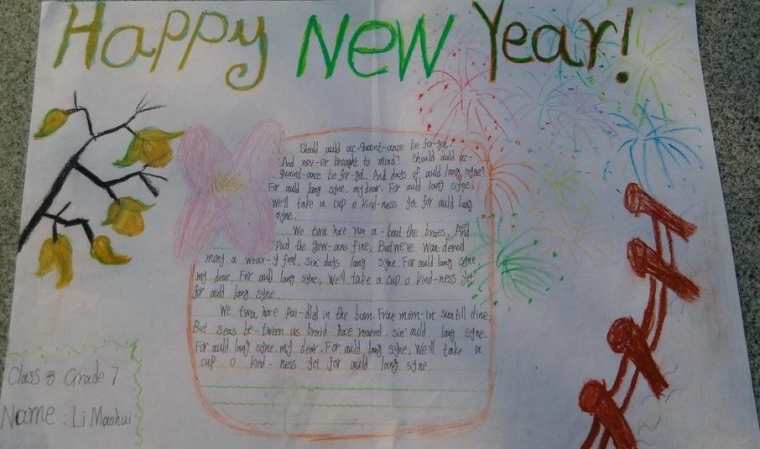 Happy New Year!
Should auld ac-quaint-ance be for-got.
And nev-er brought to mind? Should auld ac-
quaint-ance be for-got. And days of auld lang syne?
For auld lang syne. my dear. For auld lang syne,
We'll take a cup o kind-ness yet for auld lang
syne.
We twa have run a-bout the braes, And
Pud the gow-ans fine, But we've wan-dered
many a wear-y foot, sin' days lang syne. For auld lang syne
my dear. For auld lang syne, We'll take a cup o kind-ness yet
for auld lang syne.
We twa have pai-dld in the burn. Frae morn-in' sun till dine
But seas be-tween us braid have roared. sin' auld lang syne.
For auld lang syne. my dear. For auld lang syne, We'll take a
cup o kind-ness yet for auld lang syne.
Class 8 Grade 7
Name: Li Maohui